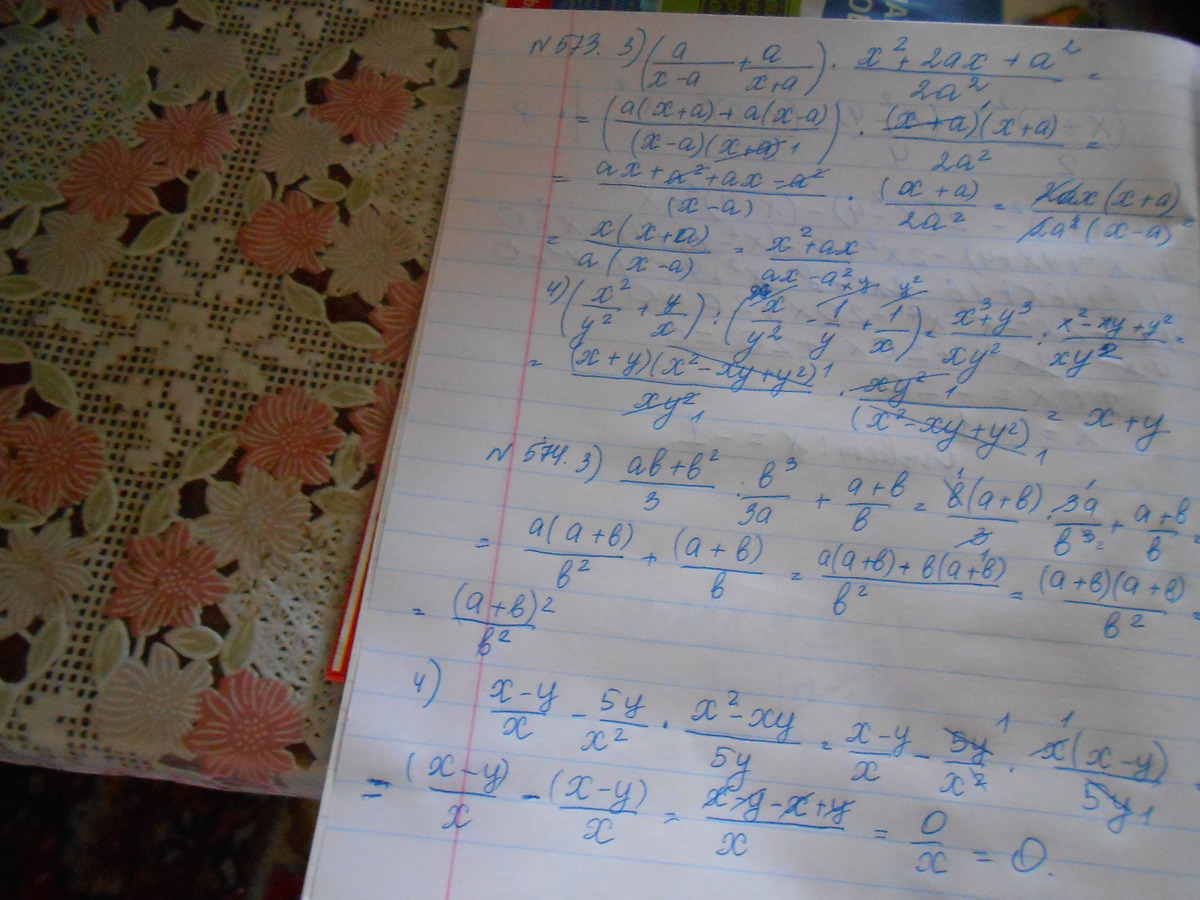 №573. 3) (a/(x-a) + a/(x+a)) · (x²+2ax+a²)/(2a²) =
= ((a(x+a)+a(x-a))/((x-a)(x+a) 1)) · ((x+a)¹(x+a))/(2a²) =
= (ax+a²+ax-a²)/(x-a) · (x+a)/(2a²) = (2ax(x+a))/(2a²(x-a)) =
= (x(x+a))/(a(x-a)) = (x²+ax)/(ax-a²)
4) (x²/y² + y/x) : (x/y² - 1/y + 1/x) = (x³+y³)/(xy²) : (x²-xy+y²)/(xy²) =
= ((x+y)(x²-xy+y²)¹)/(xy² 1) · (xy² 1)/((x²-xy+y²) 1) = x+y
№574. 3) (ab+b²)/3 : b³/(3a) + (a+b)/b = (b¹(a+b))/3 · (3a)/(b³ ²) + (a+b)/b =
= (a(a+b))/b² + (a+b)/b = (a(a+b)+b(a+b))/b² = ((a+b)(a+b))/b² =
= (a+b)²/b²
4) (x-y)/x - 5y/x² · (x²-xy)/(5y) = (x-y)/x - (5y 1)/x² · (x¹(x-y))/(5y 1) =
= (x-y)/x - (x-y)/x = (x-y-x+y)/x = 0/x = 0.